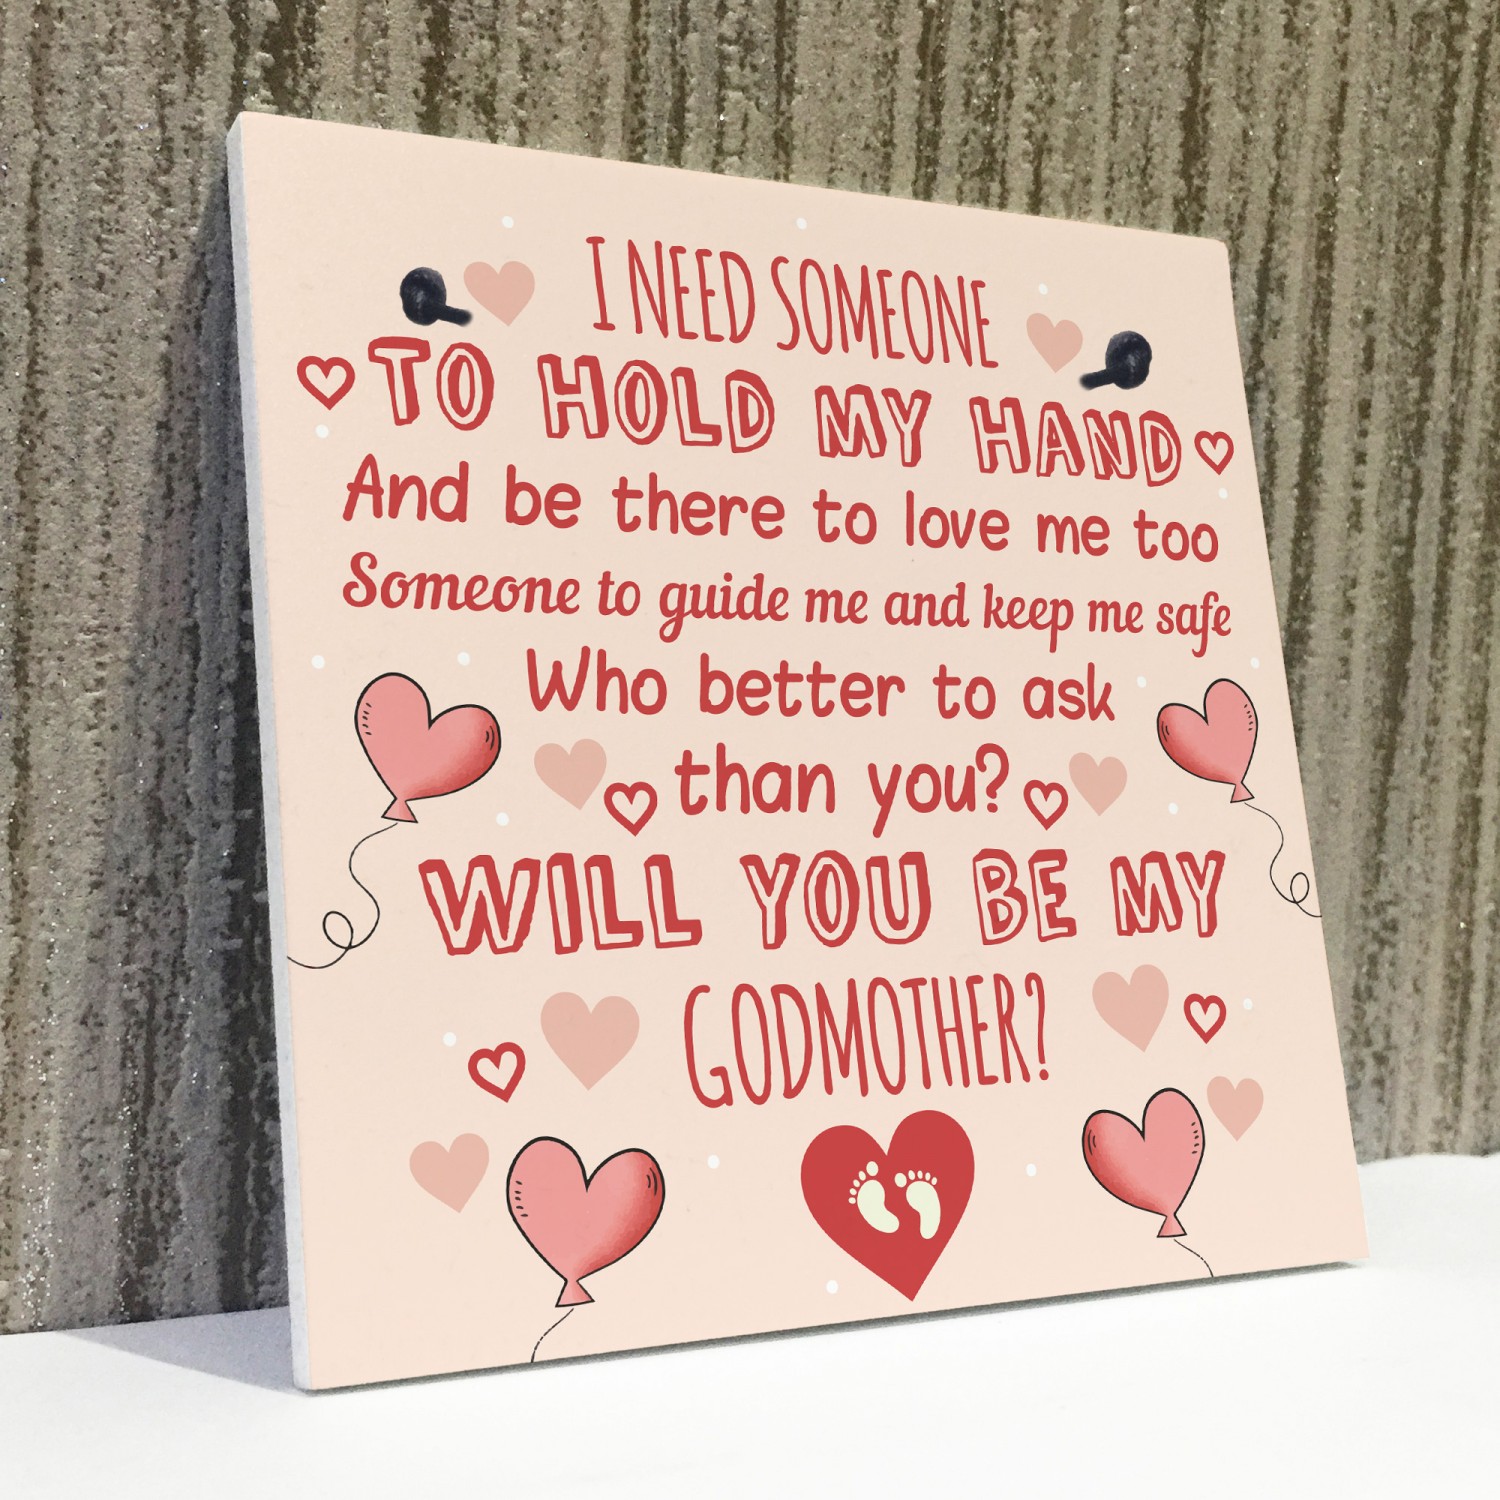 I NEED SOMEONE
TO HOLD MY HAND
And be there to love me too
Someone to guide me and keep me safe
Who better to ask
than you?
WILL YOU BE MY
GODMOTHER?